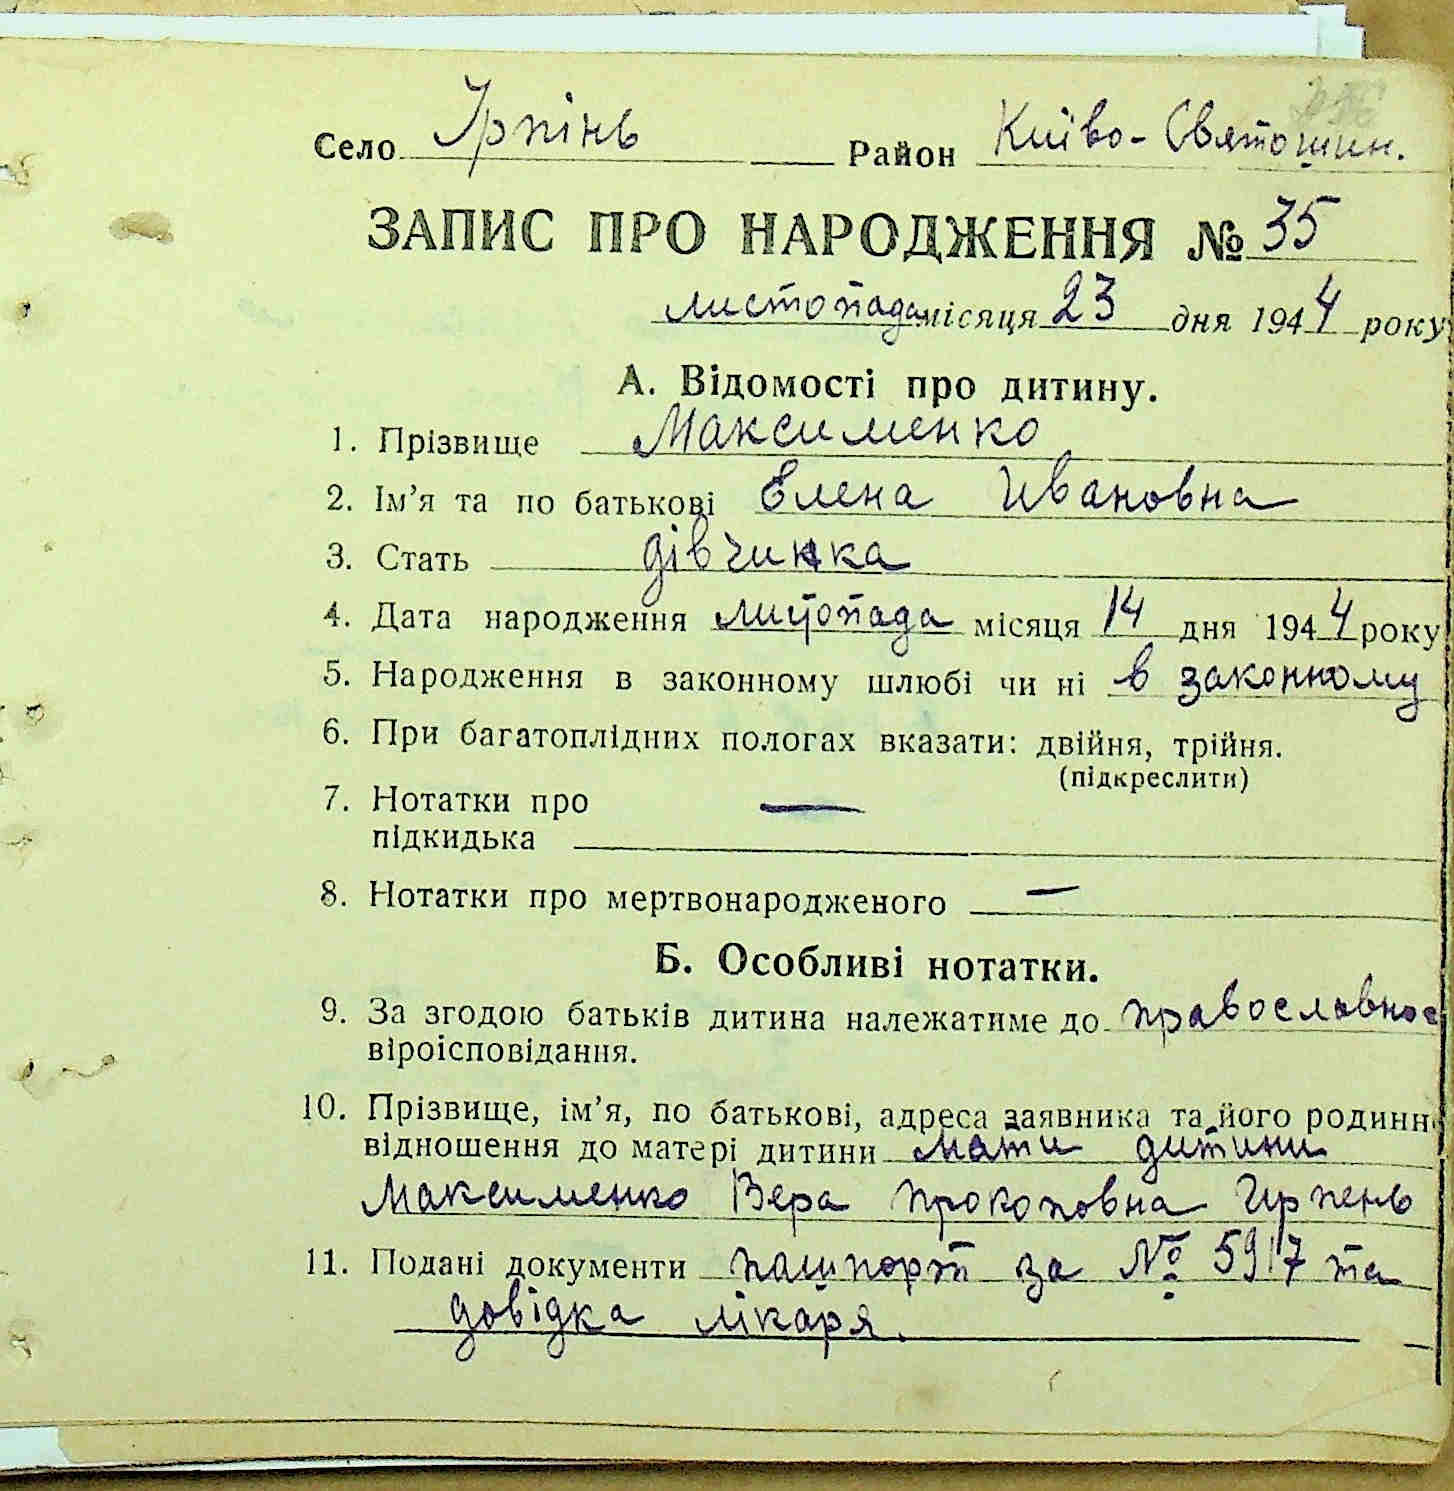 Село Ірпінь Район Київо-Святошин.
ЗАПИС ПРО НАРОДЖЕННЯ № 35
листопада місяця 23 дня 1944 року
А. Відомості про дитину.
1. Прізвище Максименко
2. Ім’я та по батькові Елена Ивановна
3. Стать дівчинка
4. Дата народження листопада місяця 14 дня 1944 року
5. Народження в законному шлюбі чи ні в законному
6. При багатоплідних пологах вказати: двійня, трійня.
(підкреслити)
7. Нотатки про —
підкидька
8. Нотатки про мертвонародженого —
Б. Особливі нотатки.
9. За згодою батьків дитина належатиме до православног
віроісповідання.
10. Прізвище, ім’я, по батькові, адреса заявника та його родинн
відношення до матері дитини мати дитини
Максименко Вера Прокоповна Ирпень
11. Подані документи пашпорт за № 5917 та
довідка лікаря.